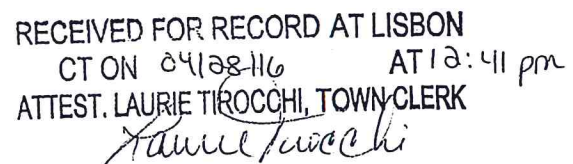 RECEIVED FOR RECORD AT LISBON
CT ON 04/28/16 AT 12:41 pm
ATTEST. LAURIE TIROCCHI, TOWN CLERK
Laurie Tirocchi